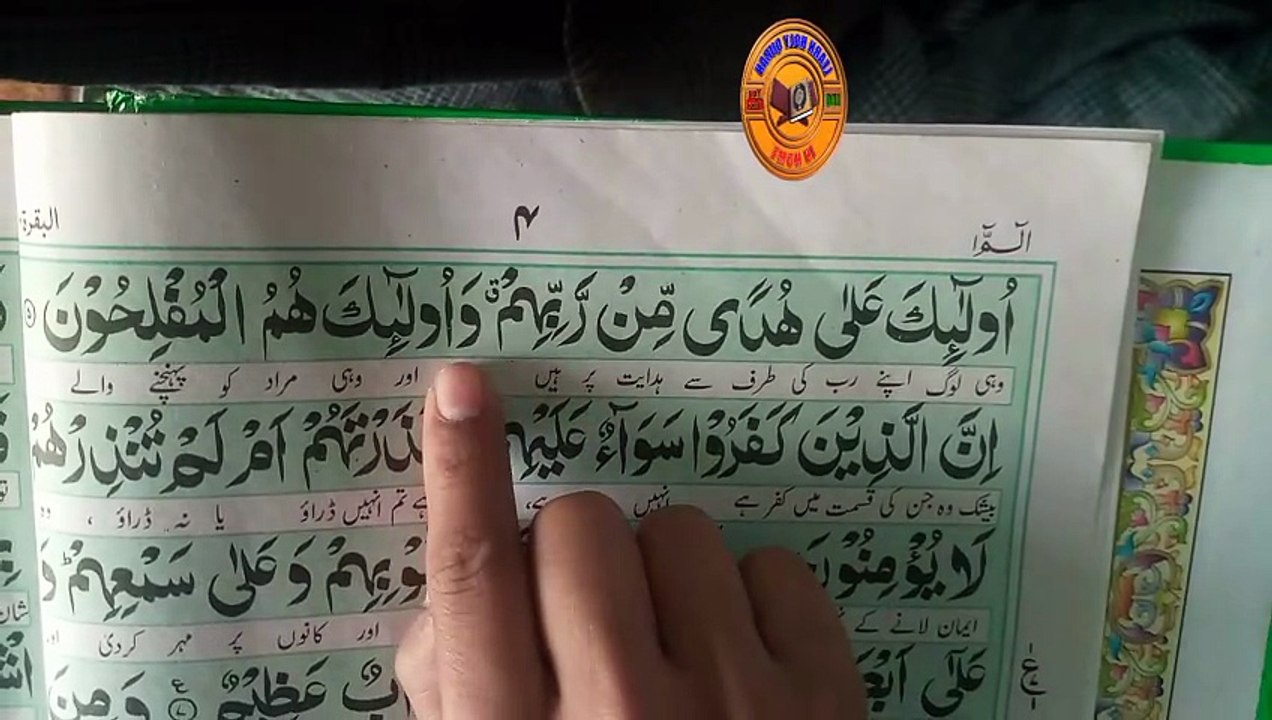 الٓمّٓ ١
٤
البقرة
اُولٰٓئِكَ عَلٰى هُدًى مِّنْ رَّبِّهِمْ ۗ وَاُولٰٓئِكَ هُمُ الْمُفْلِحُوْنَ ۝٥
وہی لوگ اپنے رب کی طرف سے ہدایت پر ہیں اور وہی مراد کو پہنچنے والے
اِنَّ الَّذِيْنَ كَفَرُوْا سَوَآءٌ عَلَيْهِ ذَرْتَهُمْ اَمْ لَمْ تُنْذِرْهُمْ
بیشک وہ جن کی قسمت میں کفر ہے انہیں ہے، تم انہیں ڈراؤ یا نہ ڈراؤ ، وہ
لَا يُؤْمِنُوْ وْبِهِمْ وَعَلٰى سَمْعِهِمْ ؕ وَ
ایمان لانے کے اور کانوں پر مہر کردی او
عَلٰٓى اَبْ ابٌ عَظِيْمٌ ۝٧ وَمِنَ